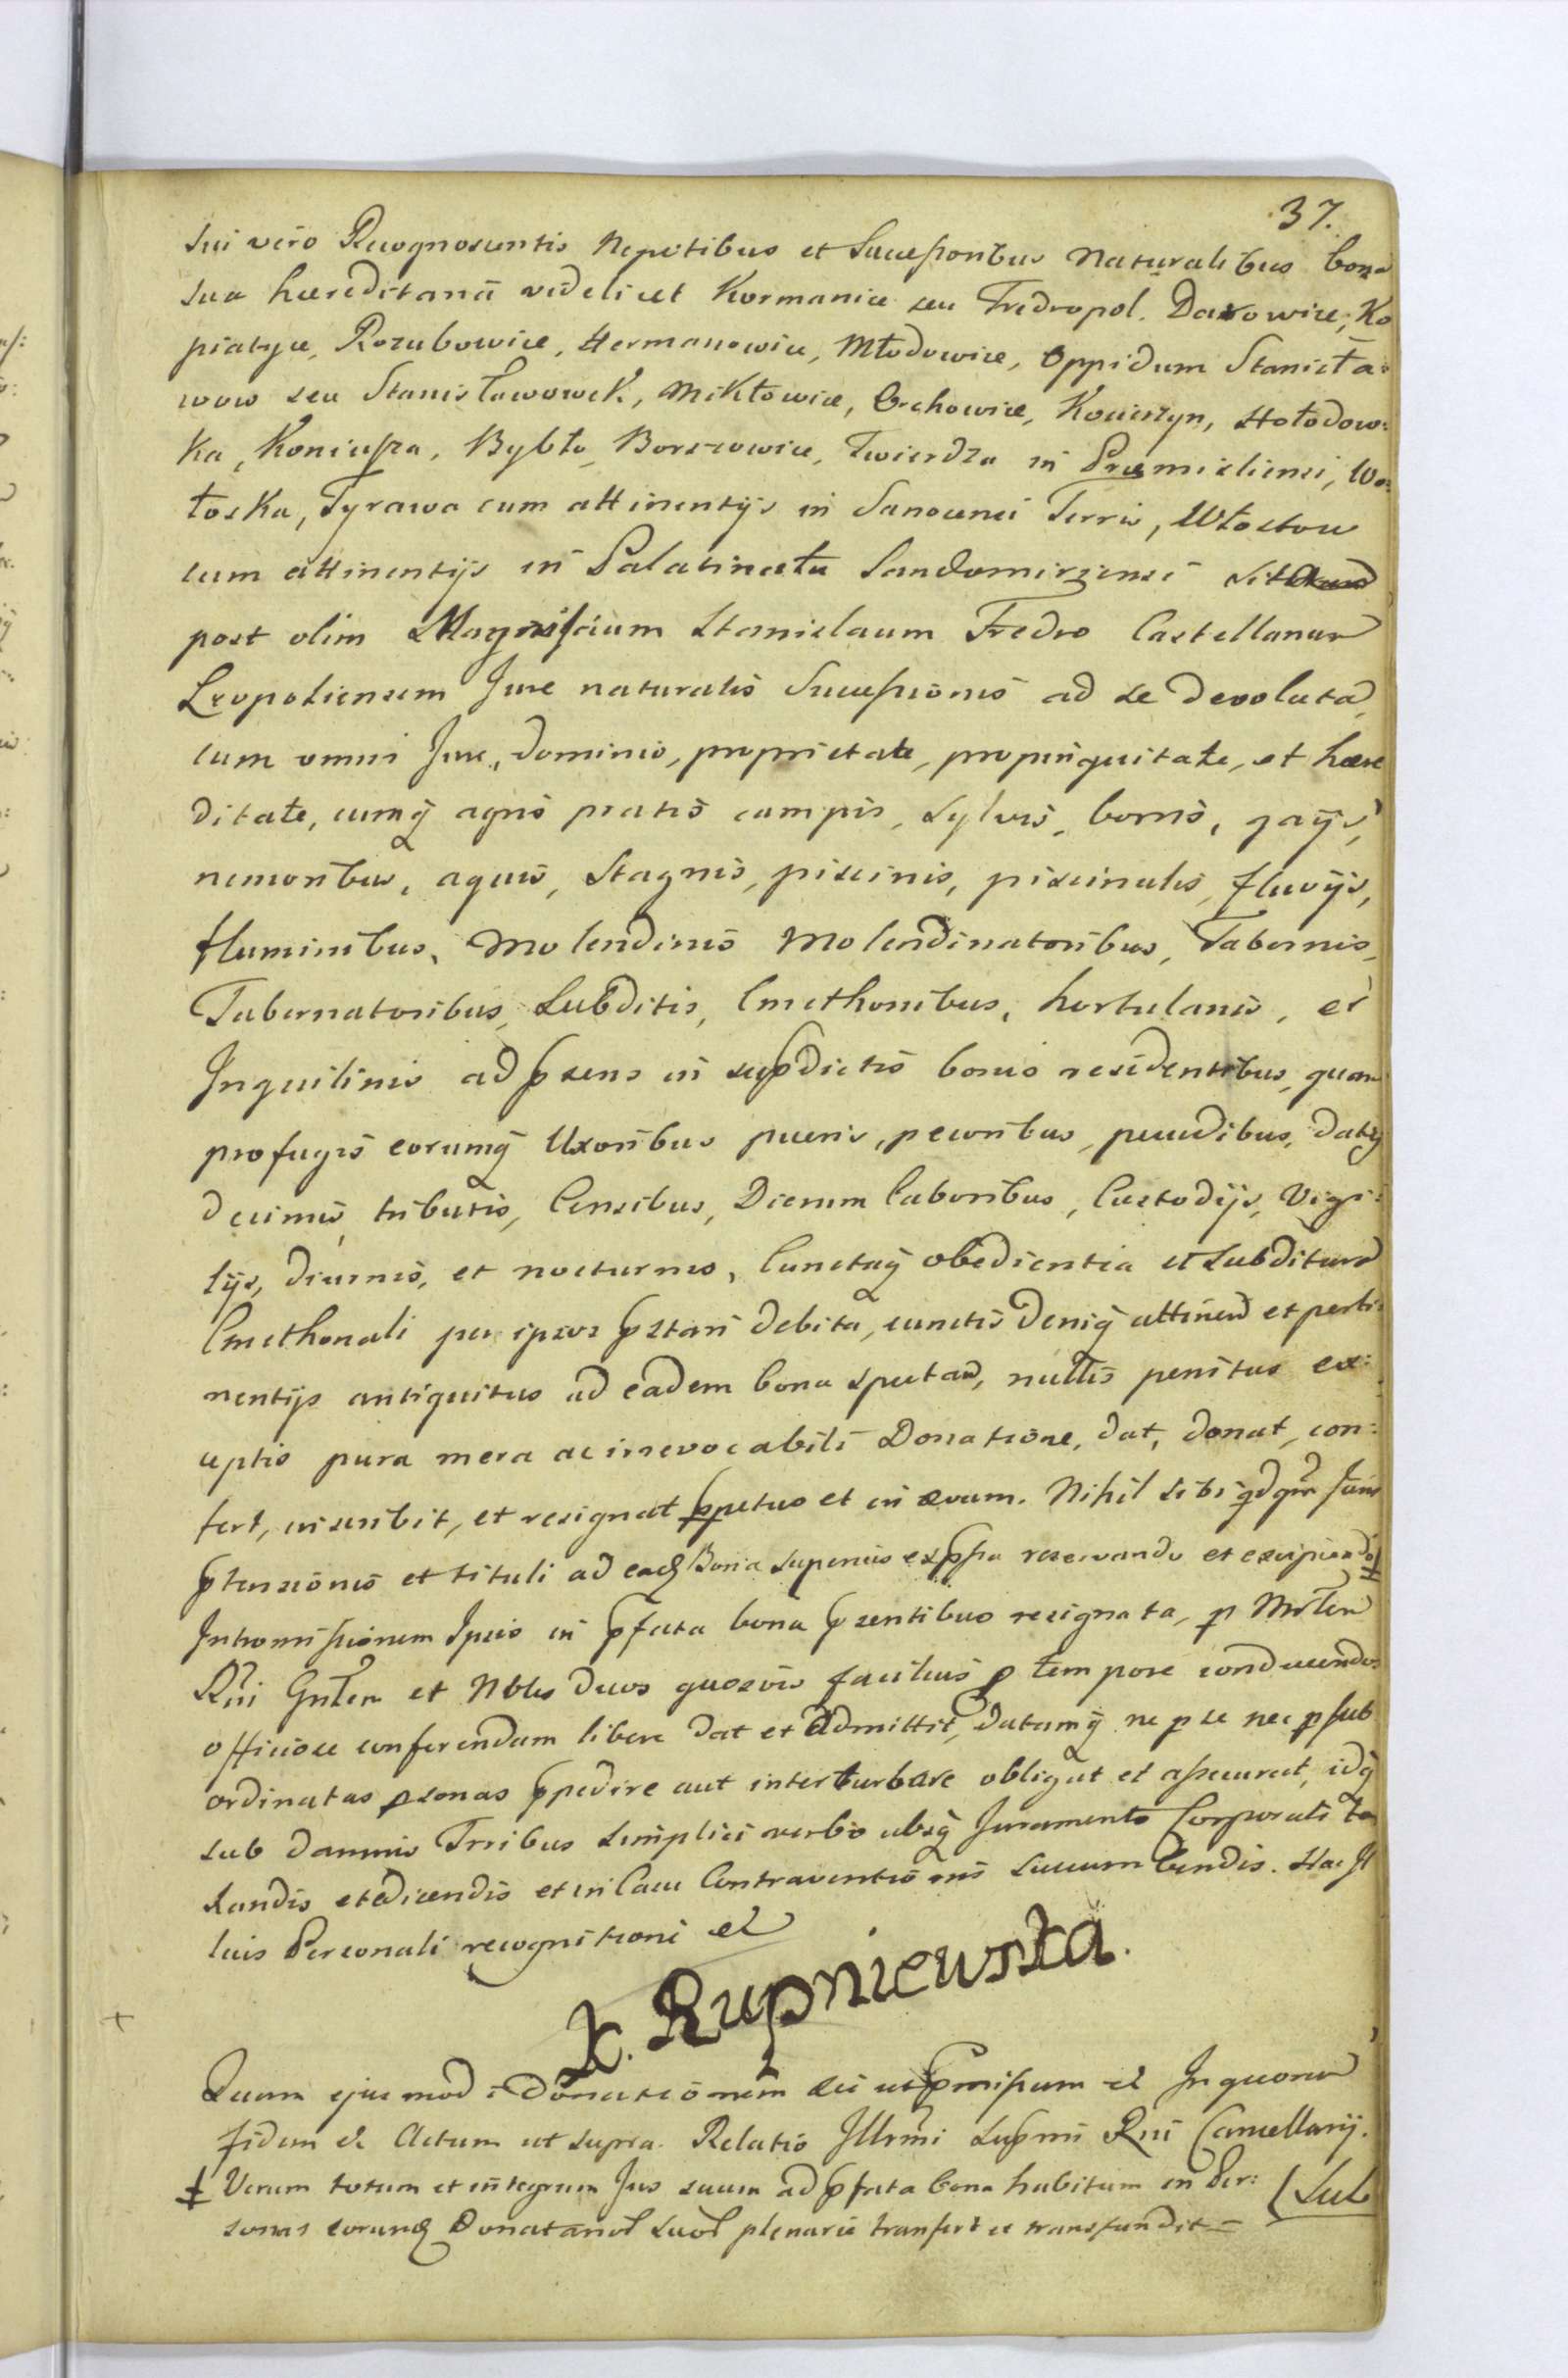 37.
sui vero Recognoscentis Nepotibus et Successoribus Naturalibus bona
sua hæreditaria videlicet Kormanice seu Fredropol. Darowice, Ko
piatyce, Rozubowice, Hermanowice, Młodowice, Oppidum Stanisła:
wow seu Stanisławowek, Mikłowice, Orchowice, Koniszyn, Hołodow:
ka, Koniuszа, Bybło, Borszowice, Twierdza in Præmisliensi, Wo:
łoska, Tyrawa cum attinentijs in Sanocensi Terris, Włostow
cum attinentijs in Palatinatu Sandomirzensi sita
post olim Magnificum Stanislaum Fredro Castellanum
Leopoliensem Jure naturalis Successionis ad se devoluta,
cum omni Jure, dominio, proprietate, propinquitate, et hære
ditate, cumq agris pratis campis, sylvis, borris, gaijs,
nemoribus, aquis, Stagnis, piscinis, piscinulis, fluvijs,
fluminibus, Molendinis Molendinatoribus, Tabernis,
Tabernatoribus, Subditis, Cmethonibus, hortulanis, et
Inquilinis ad psens in supdictis bonis residentibus, quam
profugis eorumq Uxoribus pueris, pecoribus, pecudibus, datijs
decimis, tributis, Censibus, Dierum laboribus, Custodijs, Vigi:
lijs, diurnis, et nocturnis, Cunctaq obedientia et Subditura
Cmethonali per ipsos pstari debita, cunctis deniq attinen et perti:
nentijs antiquitus ad eadem bona spectan, nullis penitus ex:
ceptis pura mera ac irrevocabili Donatione, dat, donat, con:
fert, inscribit, et resignat ppetuo et in ævum. Nihil sibi Juris
ptensionis et tituli ad eadq Bona superius expssa reservando et excipiendo ‡
Intromissionem Ipsis in pfata bona psentibus resignata, p Mrlem
Rni Gnlem et Nbles duos quosvis facilius p tempore conducendos
officiose conferendam libere dat et admittit, datamq ne p se nec p sub
ordinatas psonas ppedire aut interturbare obligat et assecurat, idq
sub damnis Terribus simplici verbo absq Juramento Corporali ta
xandis et edicendis et in Casu Contraventionis succumbendis. Hac Il
lius Personali recognitioni et
K. Rupniewska.
Quam ejusmodi Donationem sui ut pmissum et In quorum
fidem et Actum ut supra. Relatio Illrmi Supmi Rni Cancellarij.
‡ Verum totum et integrum Jus suum ad pfata bona habitum in Per: (Sub
sonas eorundq Donatario suor plenarie transfert ac transfundit =